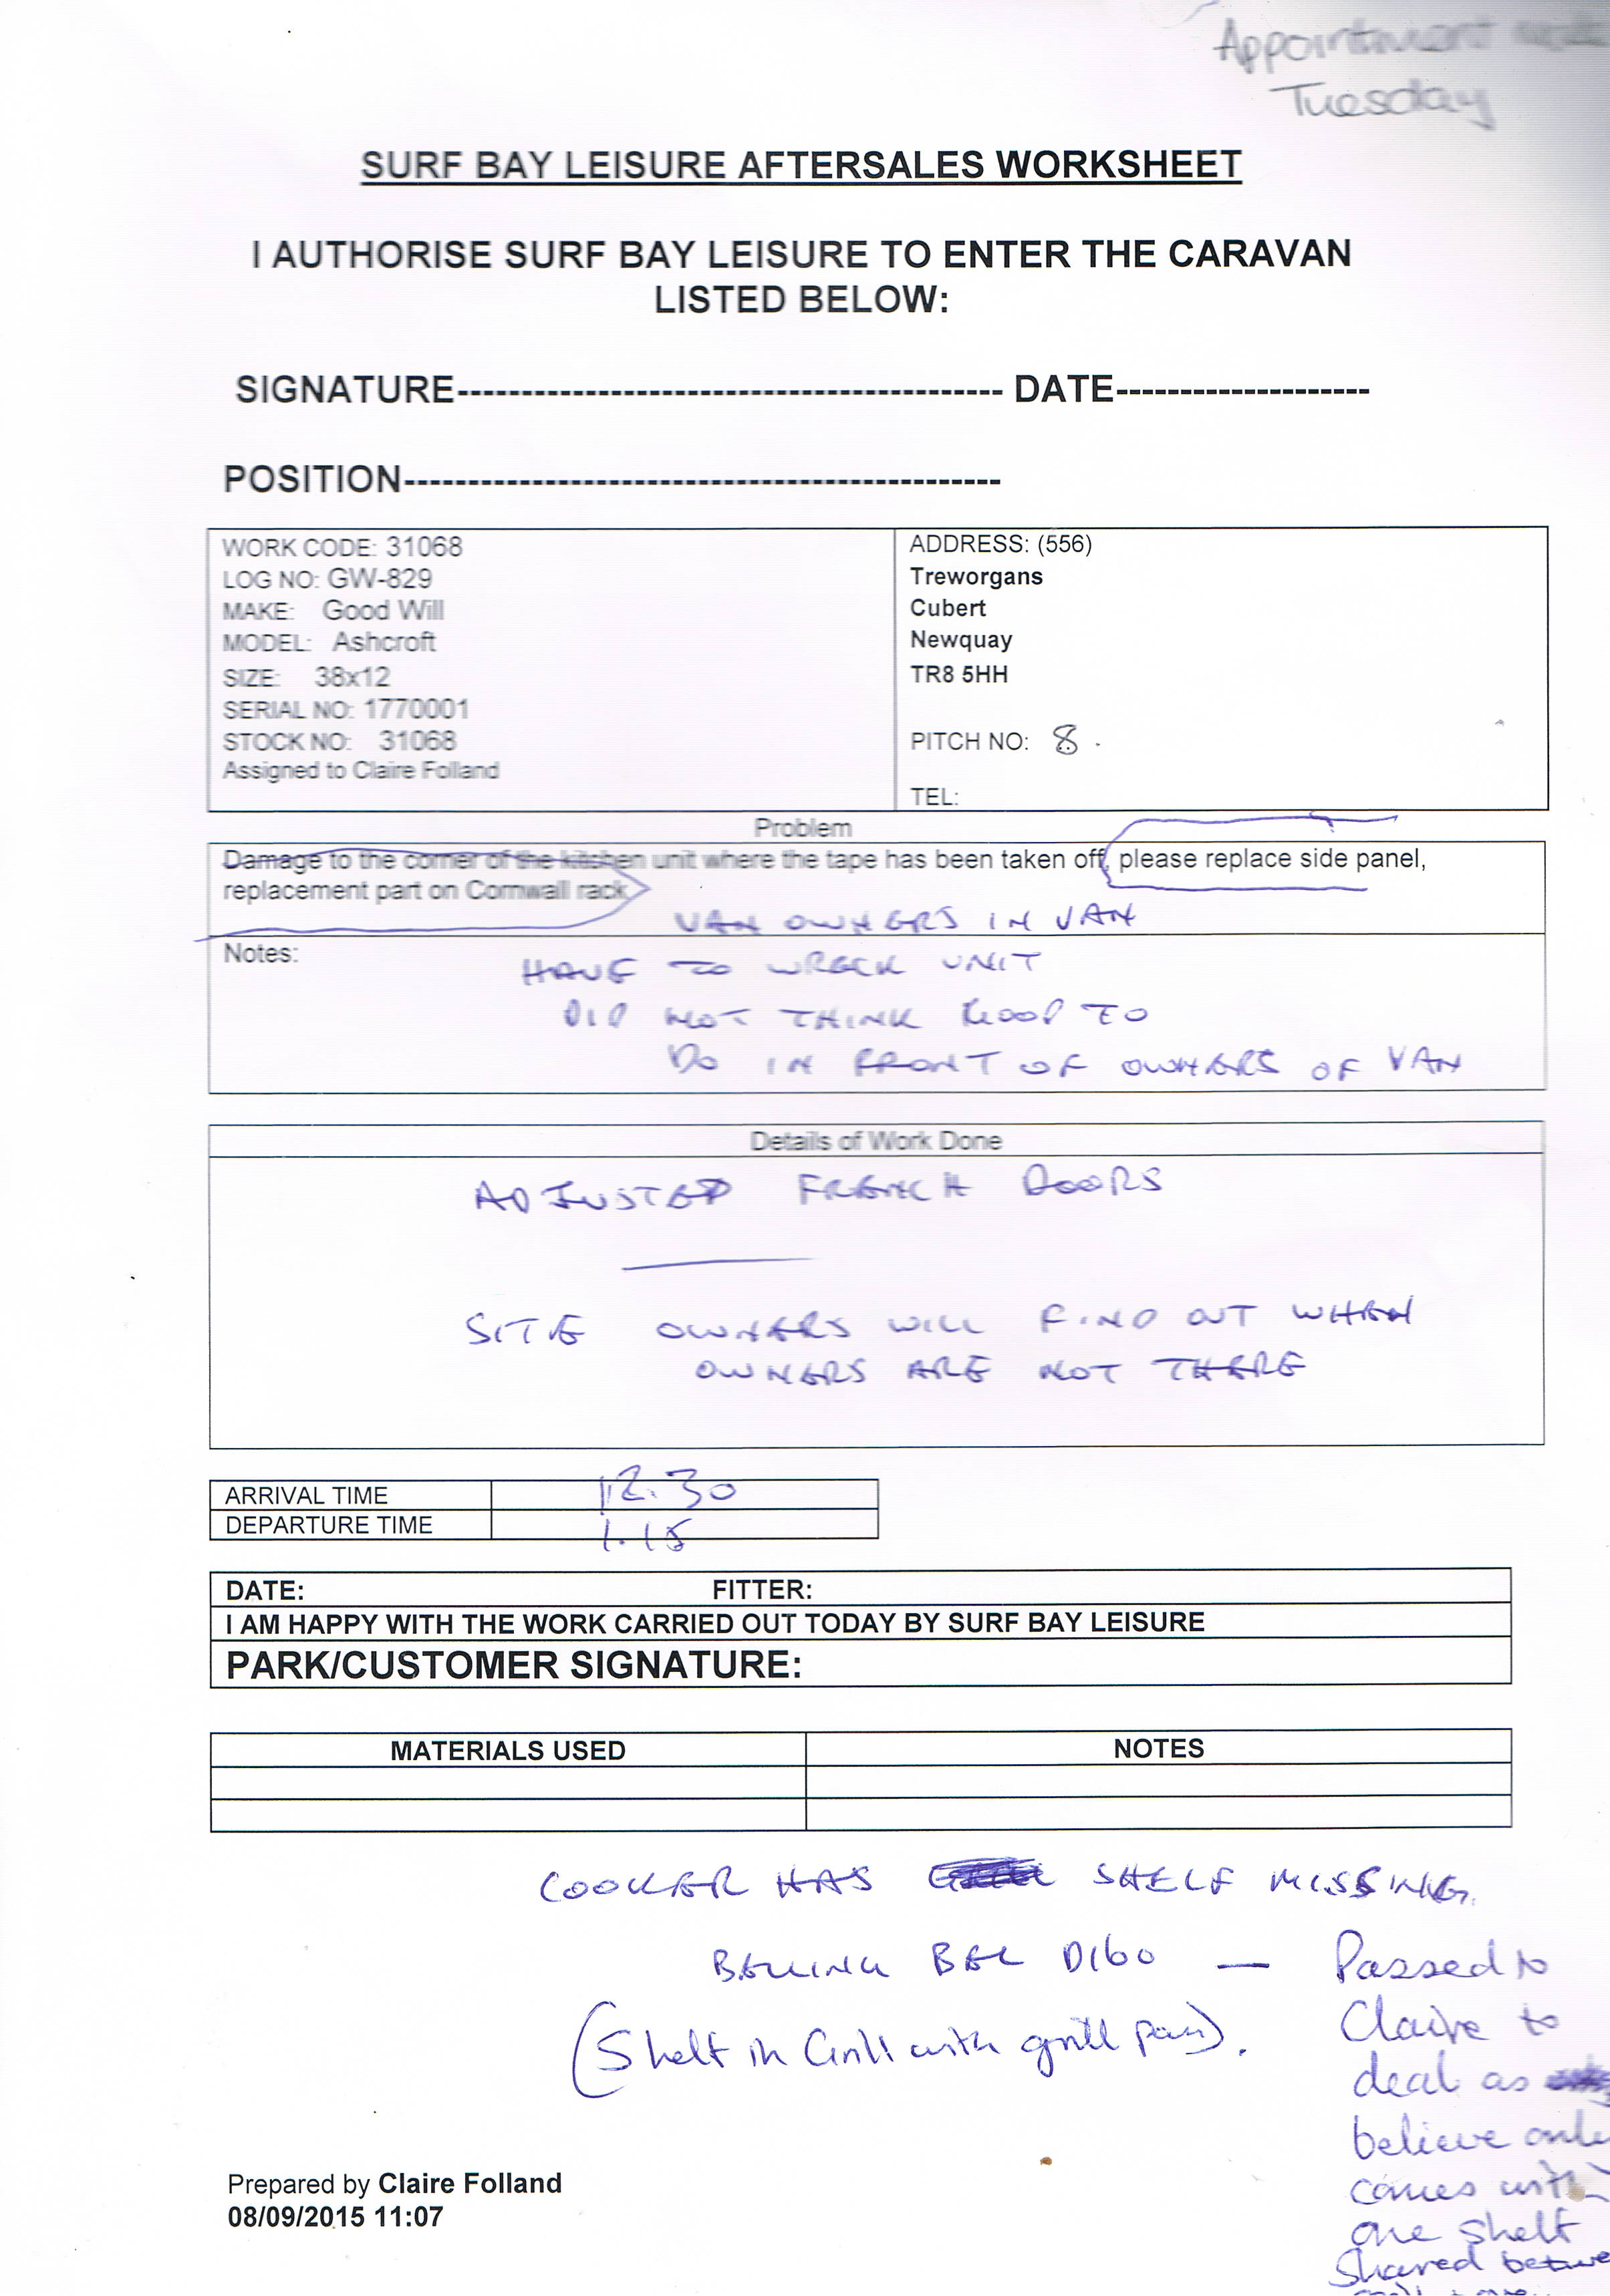 Appointment
Tuesday
SURF BAY LEISURE AFTERSALES WORKSHEET
I AUTHORISE SURF BAY LEISURE TO ENTER THE CARAVAN
LISTED BELOW:
SIGNATURE------------------------------------------- DATE--------------------
POSITION-----------------------------------------------
WORK CODE: 31068
LOG NO: GW-829
MAKE: Good Will
MODEL: Ashcroft
SIZE: 38x12
SERIAL NO: 1770001
STOCK NO: 31068
Assigned to Claire Folland
ADDRESS: (556)
Treworgans
Cubert
Newquay
TR8 5HH
PITCH NO: 8.
TEL:
Problem
Damage to the corner of the kitchen unit where the tape has been taken off, please replace side panel,
replacement part on Cornwall rack
VAN OWNERS IN VAN
Notes:
HAVE TO WRECK UNIT
DID NOT THINK GOOD TO
DO IN FRONT OF OWNERS OF VAN
Details of Work Done
ADJUSTED FRENCH DOORS
SITE OWNERS WILL FIND OUT WHEN
OWNERS ARE NOT THERE
ARRIVAL TIME 12.30
DEPARTURE TIME 1.15
DATE: FITTER:
I AM HAPPY WITH THE WORK CARRIED OUT TODAY BY SURF BAY LEISURE
PARK/CUSTOMER SIGNATURE:
MATERIALS USED NOTES
COOKER HAS SHELF MISSING.
BELLING BEL D160 — Passed to
(Shelf in Grill with grill pan).
Claire to
deal as
believe only
comes with
one shelf
Shared betwe
Prepared by Claire Folland
08/09/2015 11:07